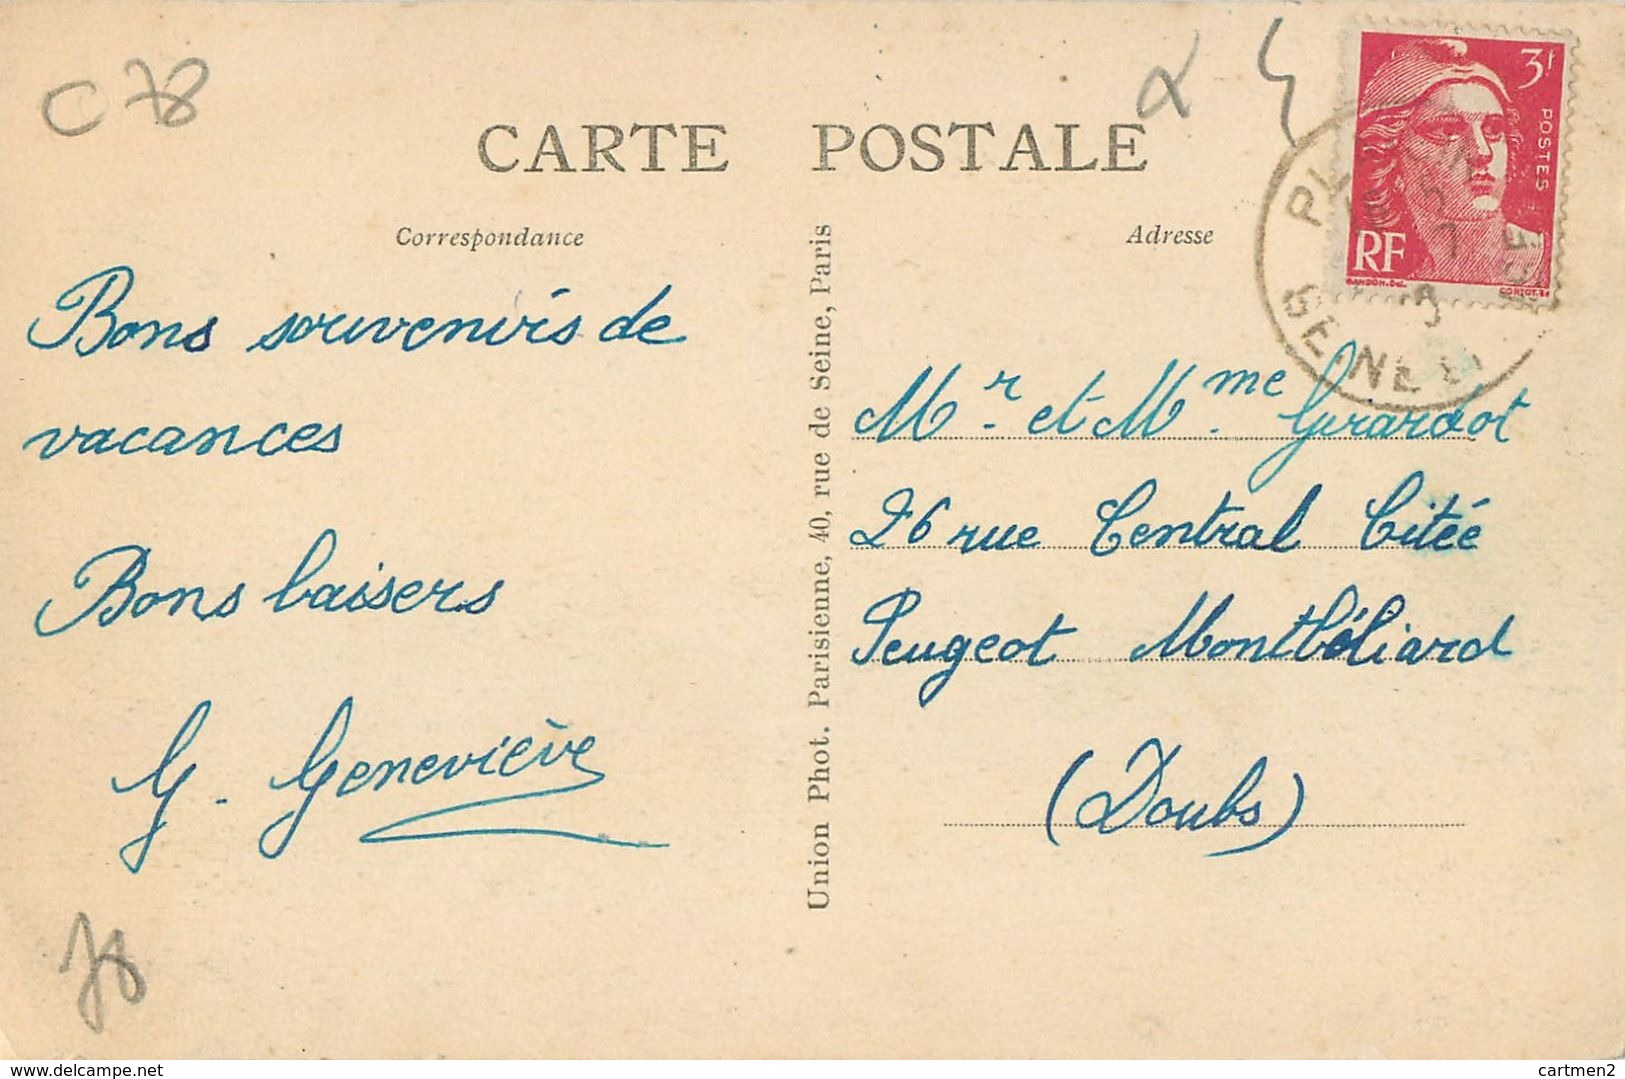 C 78
CARTE POSTALE
Correspondance
Adresse
Bons souvenirs de
vacances
Bons baisers
G. Geneviève
78
Union Phot. Parisienne, 40, rue de Seine, Paris
3f
POSTES
RF
GANDON.Del.
Mr. et Mme. Girardot
26 rue Central Citée
Peugeot Montbéliard
(Doubs)
www.delcampe.net
cartmen2